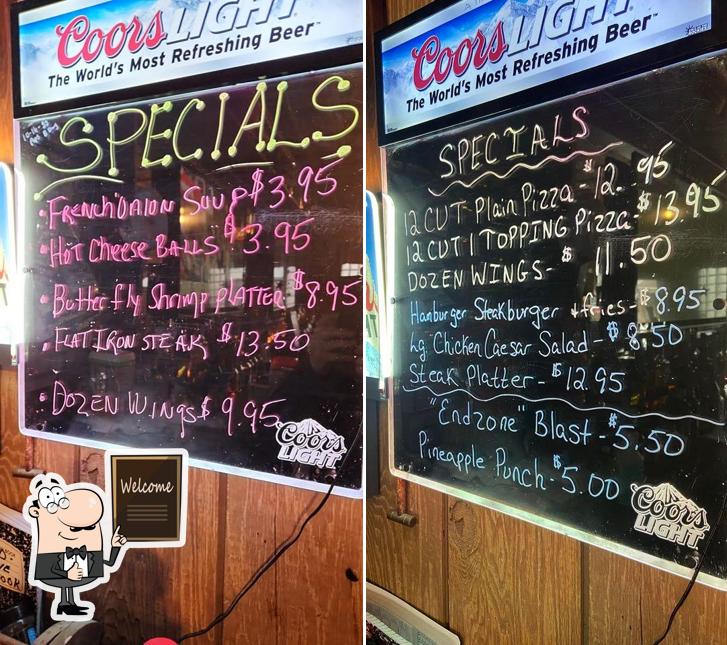 Coors LIGHT
The World's Most Refreshing Beer™
SPECIALS
• FRENCH ONION SOUP $3.95
• HOT CHEESE BALLS $3.95
• Butterfly Shrimp PLATTER $8.95
• FLAT IRON STEAK $13.50
• DOZEN WINGS $9.95
Coors
LIGHT
Welcome
Coors LIGHT
The World's Most Refreshing Beer™
SPECIALS
12 CUT Plain Pizza - $12.95
12 CUT 1 TOPPING Pizza - $13.95
DOZEN WINGS - $11.50
Hamburger Steakburger + fries - $8.95
Lg. Chicken Caesar Salad - $8.50
Steak Platter - $12.95
"Endzone" Blast - $5.50
Pineapple Punch - $5.00
Coors
LIGHT